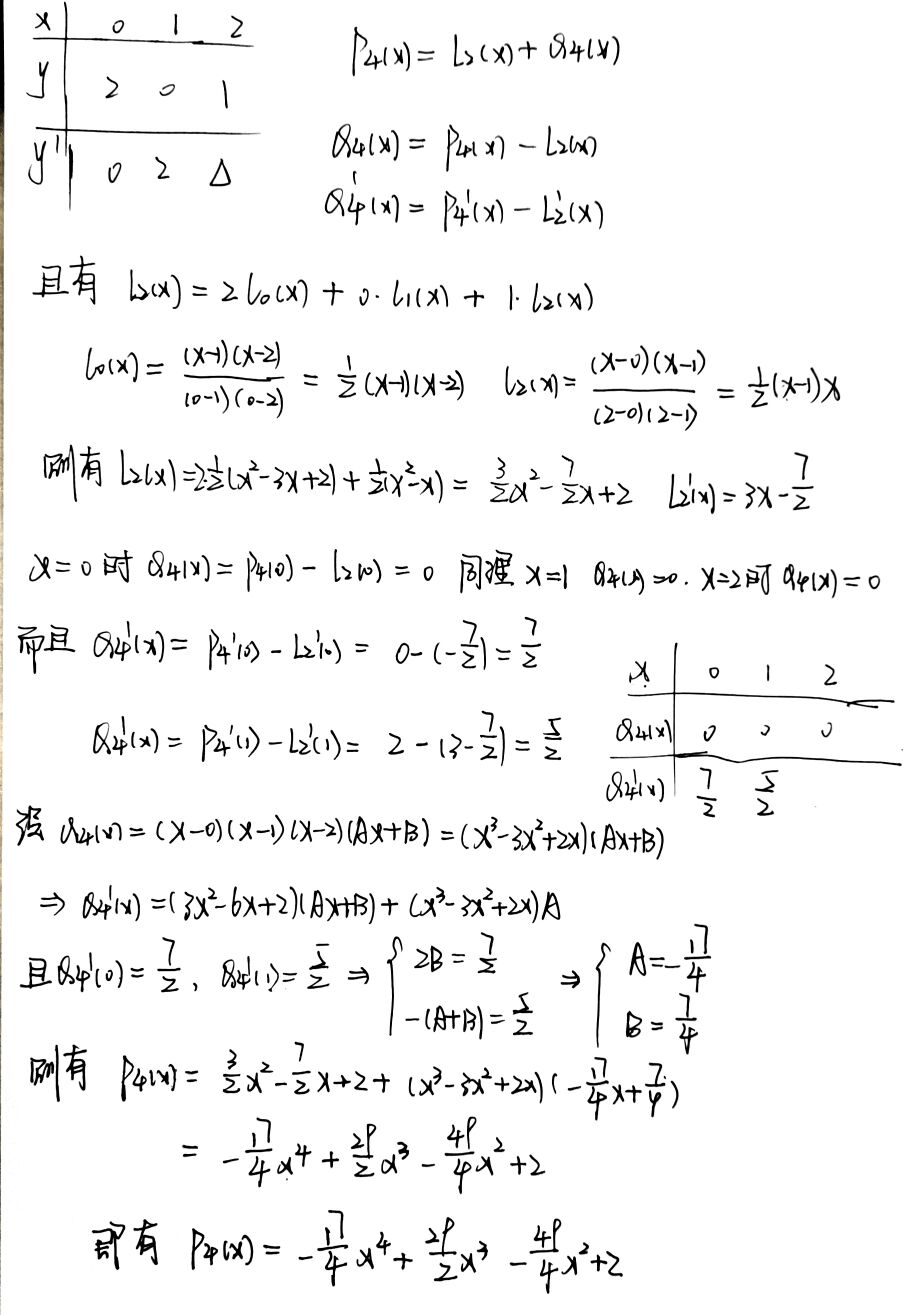 x | 0 1 2
P₄(x) = L₂(x) + Q₄(x)
y | 2 0 1
Q₄(x) = P₄(x) - L₂(x)
y' | 0 2 Δ
Q₄'(x) = P₄'(x) - L₂'(x)
且有 L₂(x) = 2l₀(x) + 0·l₁(x) + 1·l₂(x)
l₀(x) = (x-1)(x-2)/(0-1)(0-2) = 1/2(x-1)(x-2) l₂(x) = (x-0)(x-1)/(2-0)(2-1) = 1/2(x-1)x
则有 L₂(x) = 2·1/2(x²-3x+2) + 1/2(x²-x) = 3/2x² - 7/2x + 2 L₂'(x) = 3x - 7/2
x=0时 Q₄(x) = P₄(0) - L₂(0) = 0 同理 x=1 Q₄(x)=0. x=2时 Q₄(x)=0
而且 Q₄'(x) = P₄'(0) - L₂'(0) = 0-(-7/2) = 7/2
x | 0 1 2
Q₄'(x) = P₄'(1) - L₂'(1) = 2-(3-7/2) = 5/2
Q₄(x) | 0 0 0
Q₄'(x) | 7/2 5/2
设 Q₄(x) = (x-0)(x-1)(x-2)(Ax+B) = (x³-3x²+2x)(Ax+B)
⇒ Q₄'(x) = (3x²-6x+2)(Ax+B) + (x³-3x²+2x)A
且Q₄'(0) = 7/2, Q₄'(1) = 5/2 ⇒ { 2B = 7/2 -(A+B) = 5/2 ⇒ { A = -17/4 B = 7/4
则有 P₄(x) = 3/2x² - 7/2x + 2 + (x³-3x²+2x)(-17/4x + 7/4)
= -17/4x⁴ + 29/2x³ - 49/4x² + 2
即有 P₄(x) = -17/4x⁴ + 29/2x³ - 49/4x² + 2